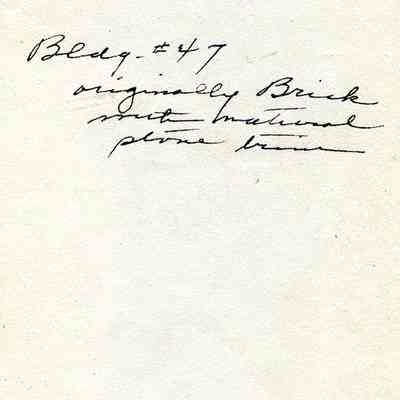 Bldg. #47
originally Brick
with natural
stone trim